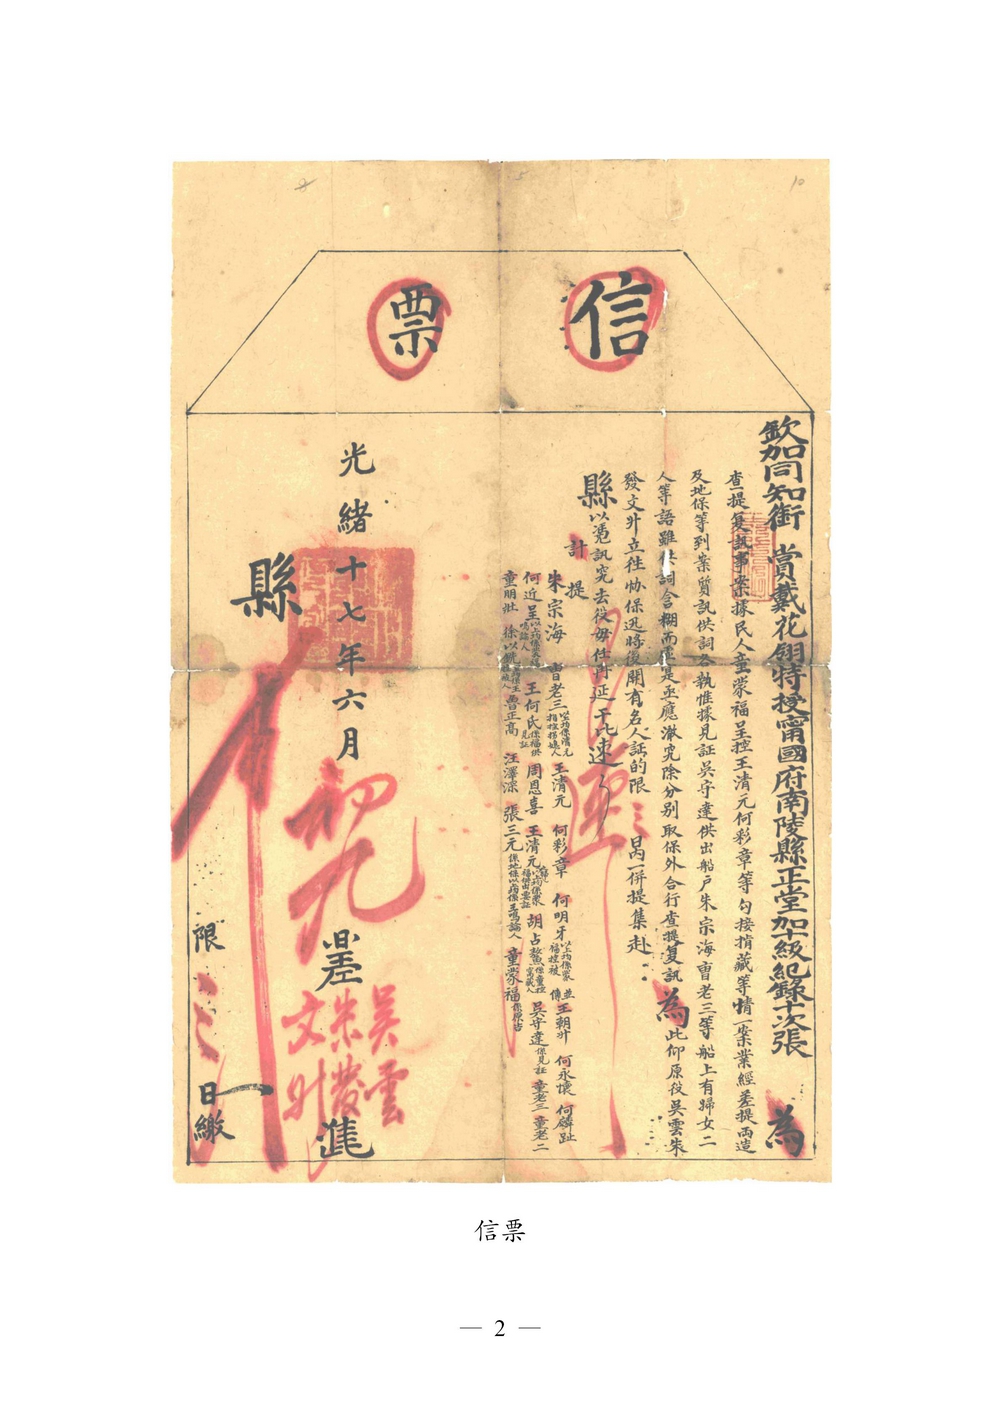 信票
欽加同知銜賞戴花翎特授甯國府南陵縣正堂加十級紀錄十次張 為
查提复訊事案據民人童蒙福呈控王清元何彩章等勾接捎藏等情一案業經差提兩造
及地保等到案質訊供詞各執惟據見証吳守達供出船戶朱宗海曹老三等船上有歸女二
人等語雖供詞含糊而是亟應澈究除分別取保外合行查提复訊為此仰原役吳雲朱
發文升立往協保迅將後開有名人証的限三日內一併提集赴
縣以凴訊究去役毋任再延干比速速
計提
朱宗海 曹老三 王清元 何彩章 何明牙 並傳 王朝升 何永懷 何麟趾
何近呈 王何氏 周恩喜 王清元 胡占鰲 吳守達係見証 童老三 童老二
童明壯 徐以 曹正高 汪澤深 張三元 童蒙福係原告
光緒十七年六月初九日差吳雲朱發文升進
縣
限三日繳
信票
— 2 —